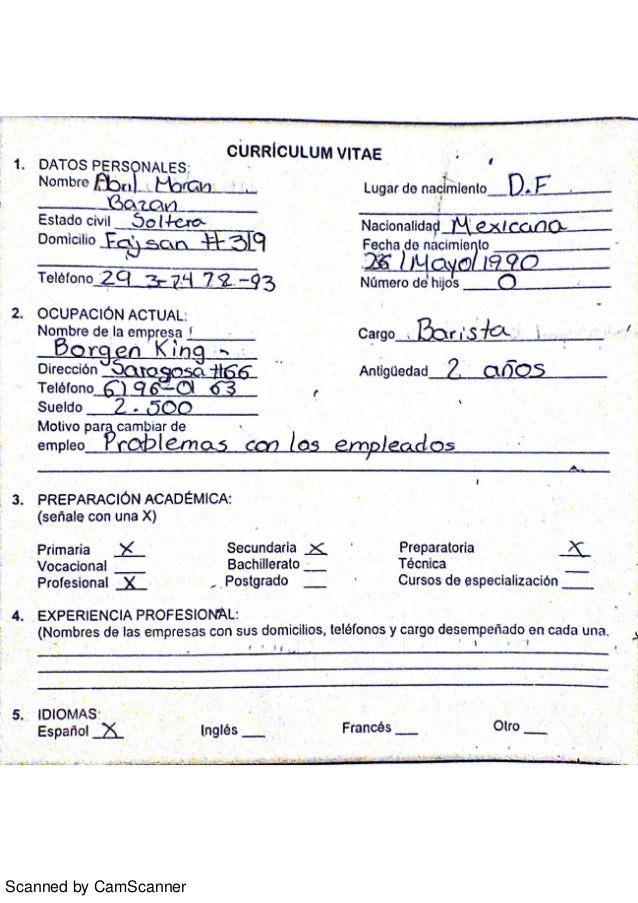 CURRÍCULUM VITAE
1. DATOS PERSONALES:
Nombre Abril Moran Lugar de nacimiento D.F
Bazan
Estado civil Soltera Nacionalidad Mexicana
Domicilio Fajsan #319 Fecha de nacimiento
28/Mayo/1990
Teléfono 29 3-74 78-93 Número de hijos 0
2. OCUPACIÓN ACTUAL:
Nombre de la empresa Cargo Barista
Borgen King
Dirección Saragosa #66 Antigüedad 2 años
Teléfono 6196-01 63
Sueldo 2.500
Motivo para cambiar de
empleo Problemas con los empleados
3. PREPARACIÓN ACADÉMICA:
(señale con una X)
Primaria X Secundaria X Preparatoria X
Vocacional Bachillerato Técnica
Profesional X Postgrado Cursos de especialización
4. EXPERIENCIA PROFESIONAL:
(Nombres de las empresas con sus domicilios, teléfonos y cargo desempeñado en cada una.
5. IDIOMAS:
Español X Inglés Francés Otro
Scanned by CamScanner